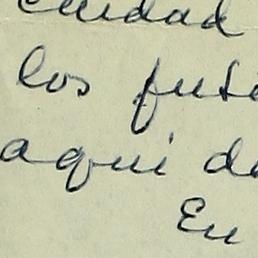 ciudad
los futu
aqui de
En